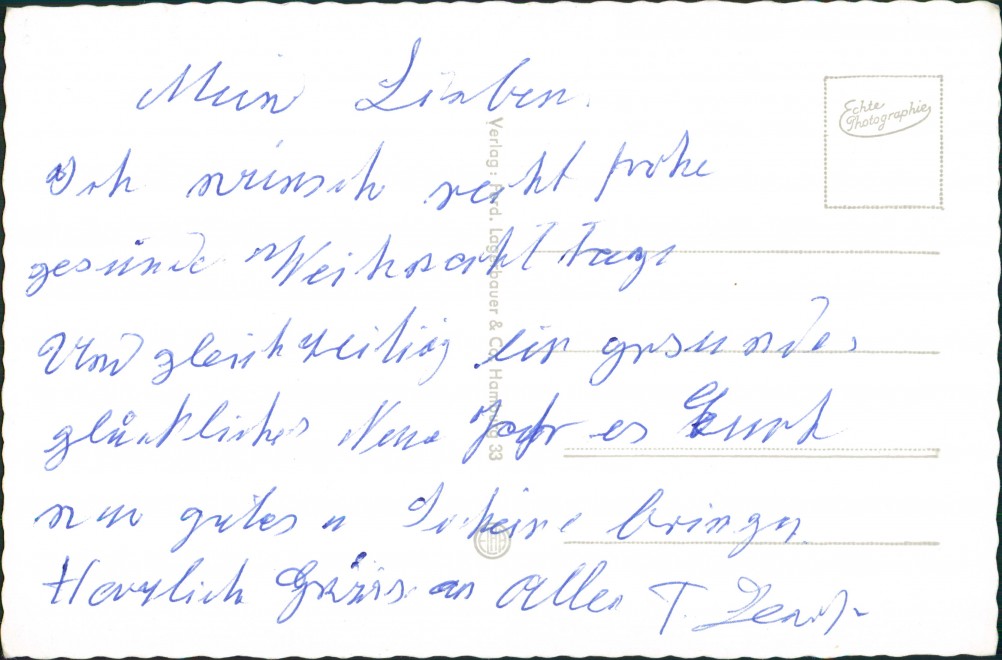 Mein Lieben.
Ich wünsch recht frohe
gesunde Weihnacht tage
Und gleichzeitig ein gesundes
glückliches Neue Jahr es Euch
nur gutes u bringen
Herzlich Grüss an Allen T.
Echte
Photographie
Verlag: Ferd. Lagerbauer & Co. Hamburg 33